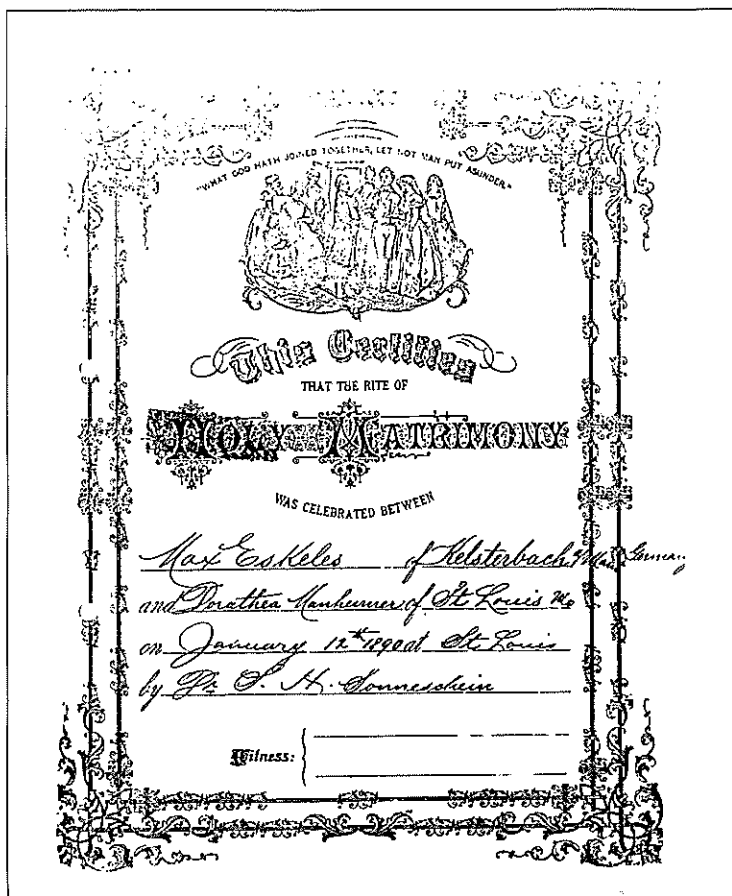 "WHAT GOD HATH JOINED TOGETHER, LET NOT MAN PUT ASUNDER."
This Certifies
THAT THE RITE OF
HOLY MATRIMONY
WAS CELEBRATED BETWEEN
Max Eskeles of Kelsterbach, Germany
and Dorathea Manheimer of St Louis Mo
on January 12th 1890 at St. Louis
by Dr S. H. Sonneschein
Witness: